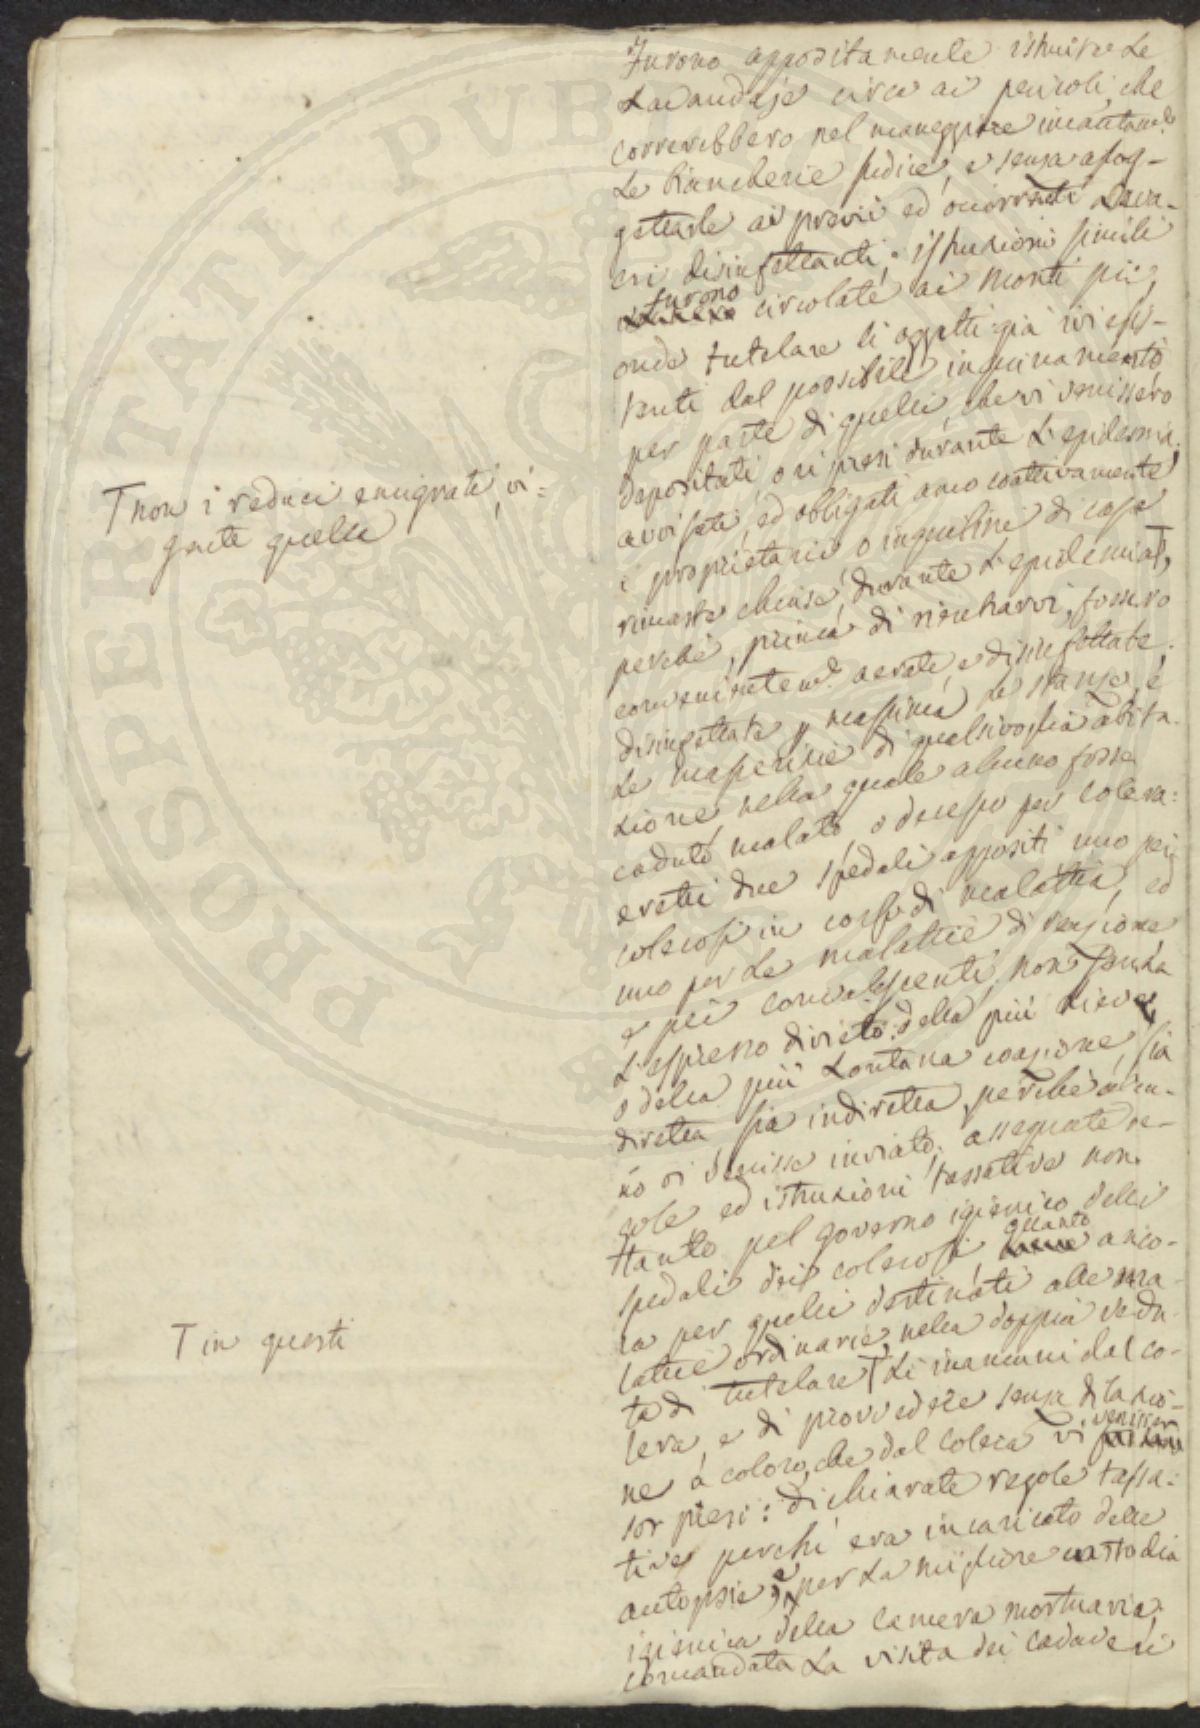 Furono appositamente istruite le
Lavandaje circa ai pericoli, che
correrebbero nel maneggiare incautame.
le biancherie sudice, e senza assog-
gettarle ai previi ed occorrenti Lava-
cri disinfettanti: istruzioni simili
furono circolate ai Monti pii,
onde tutelare li oggetti già ivi esis-
tenti dal possibile inquinamento
per parte di quelli, che vi venissero
depositati, o ripresi durante l'epidemia;
avvisati, ed obbligati anco coattivamente
i proprietarii o inquilini di case
rimaste chiuse, durante l'epidemia T,
perchè, prima di rientrarvi, fossero
convenientem.e aerate, e disinfettate;
disinfettate p massima le stanze, e
le masserizie di qualsivoglia abita-
zione nella quale alcuno fosse
caduto malato, o decesso per colera:
eretti due spedali appositi uno pei
colerosi in corso di malattia, ed
uno per le malattie di reazione
e pei convalescenti, non senza
l'espresso divieto della più lieve,
o della più lontana coazione, sia
diretta sia indiretta, perchè alcu-
no vi venisse inviato; assegnate re-
gole ed istruzioni tassative non
tanto pel governo igienico delli
spedali dei colerosi quanto anco-
ra per quelli destinati alle ma-
lattie ordinarie, nella doppia vedu-
ta di tutelare T li inamuni dal co-
lera, e di provvedere senza dilazio-
ne a coloro, che dal colera vi venisser
sor presi: dichiarate regole tassa-
tive perchi era incaricato delle
autopsie, e per la migliore custodia
igienica della camera mortuaria:
comandata la visita dei cadaveri
T non i reduci emigrati, vi=
gente quella
T in questi
PROSPERTATI PVB